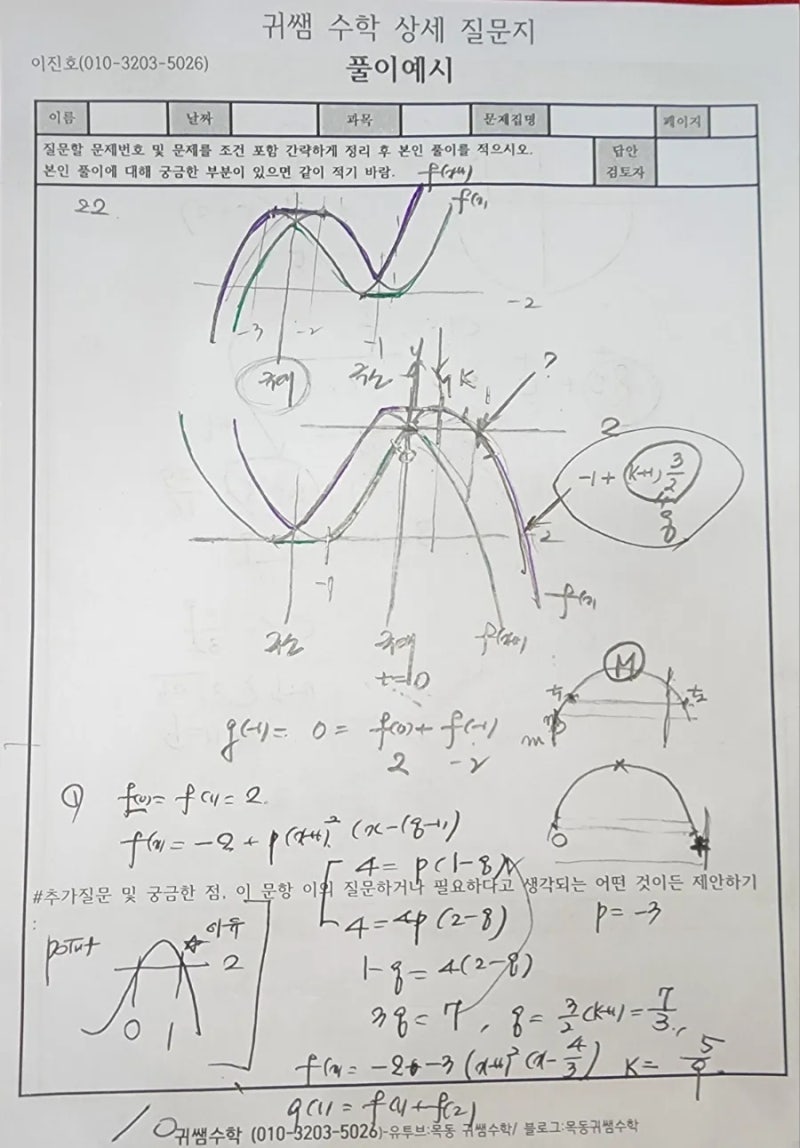 귀쌤 수학 상세 질문지
이진호(010-3203-5026)
풀이예시
이름 날짜 과목 문제집명 페이지
질문할 문제번호 및 문제를 조건 포함 간략하게 정리 후 본인 풀이를 적으시오.
본인 풀이에 대해 궁금한 부분이 있으면 같이 적기 바람.
답안
검토자
22
f(x+1)
f(x)
-2
-3 -2 -1
극대 극소
K
?
2
-1 + (k+1) 3/2
q
-2
-1
f(x)
극소 극대 f(x+1)
t=0
M
t1 t2
m
g(-1) = 0 = f(0) + f(-1)
2 -2
0
① f(0) = f(1) = 2
f(x) = -2 + p(x+1)² (x-(q-1))
4 = p(1-q)
#추가질문 및 궁금한 점, 이 문항 이외 질문하거나 필요하다고 생각되는 어떤 것이든 제안하기
:
point
이유
2
0 1
4 = 4p(2-q)
p = -3
1-q = 4(2-q)
3q = 7, q = 3/2 (k+1) = 7/3
f(x) = -2 + -3 (x+1)² (x - 4/3) K = 5/9
g(1) = f(1) + f(2)
귀쌤수학 (010-3203-5026)-유투브:목동 귀쌤수학/ 블로그:목동귀쌤수학